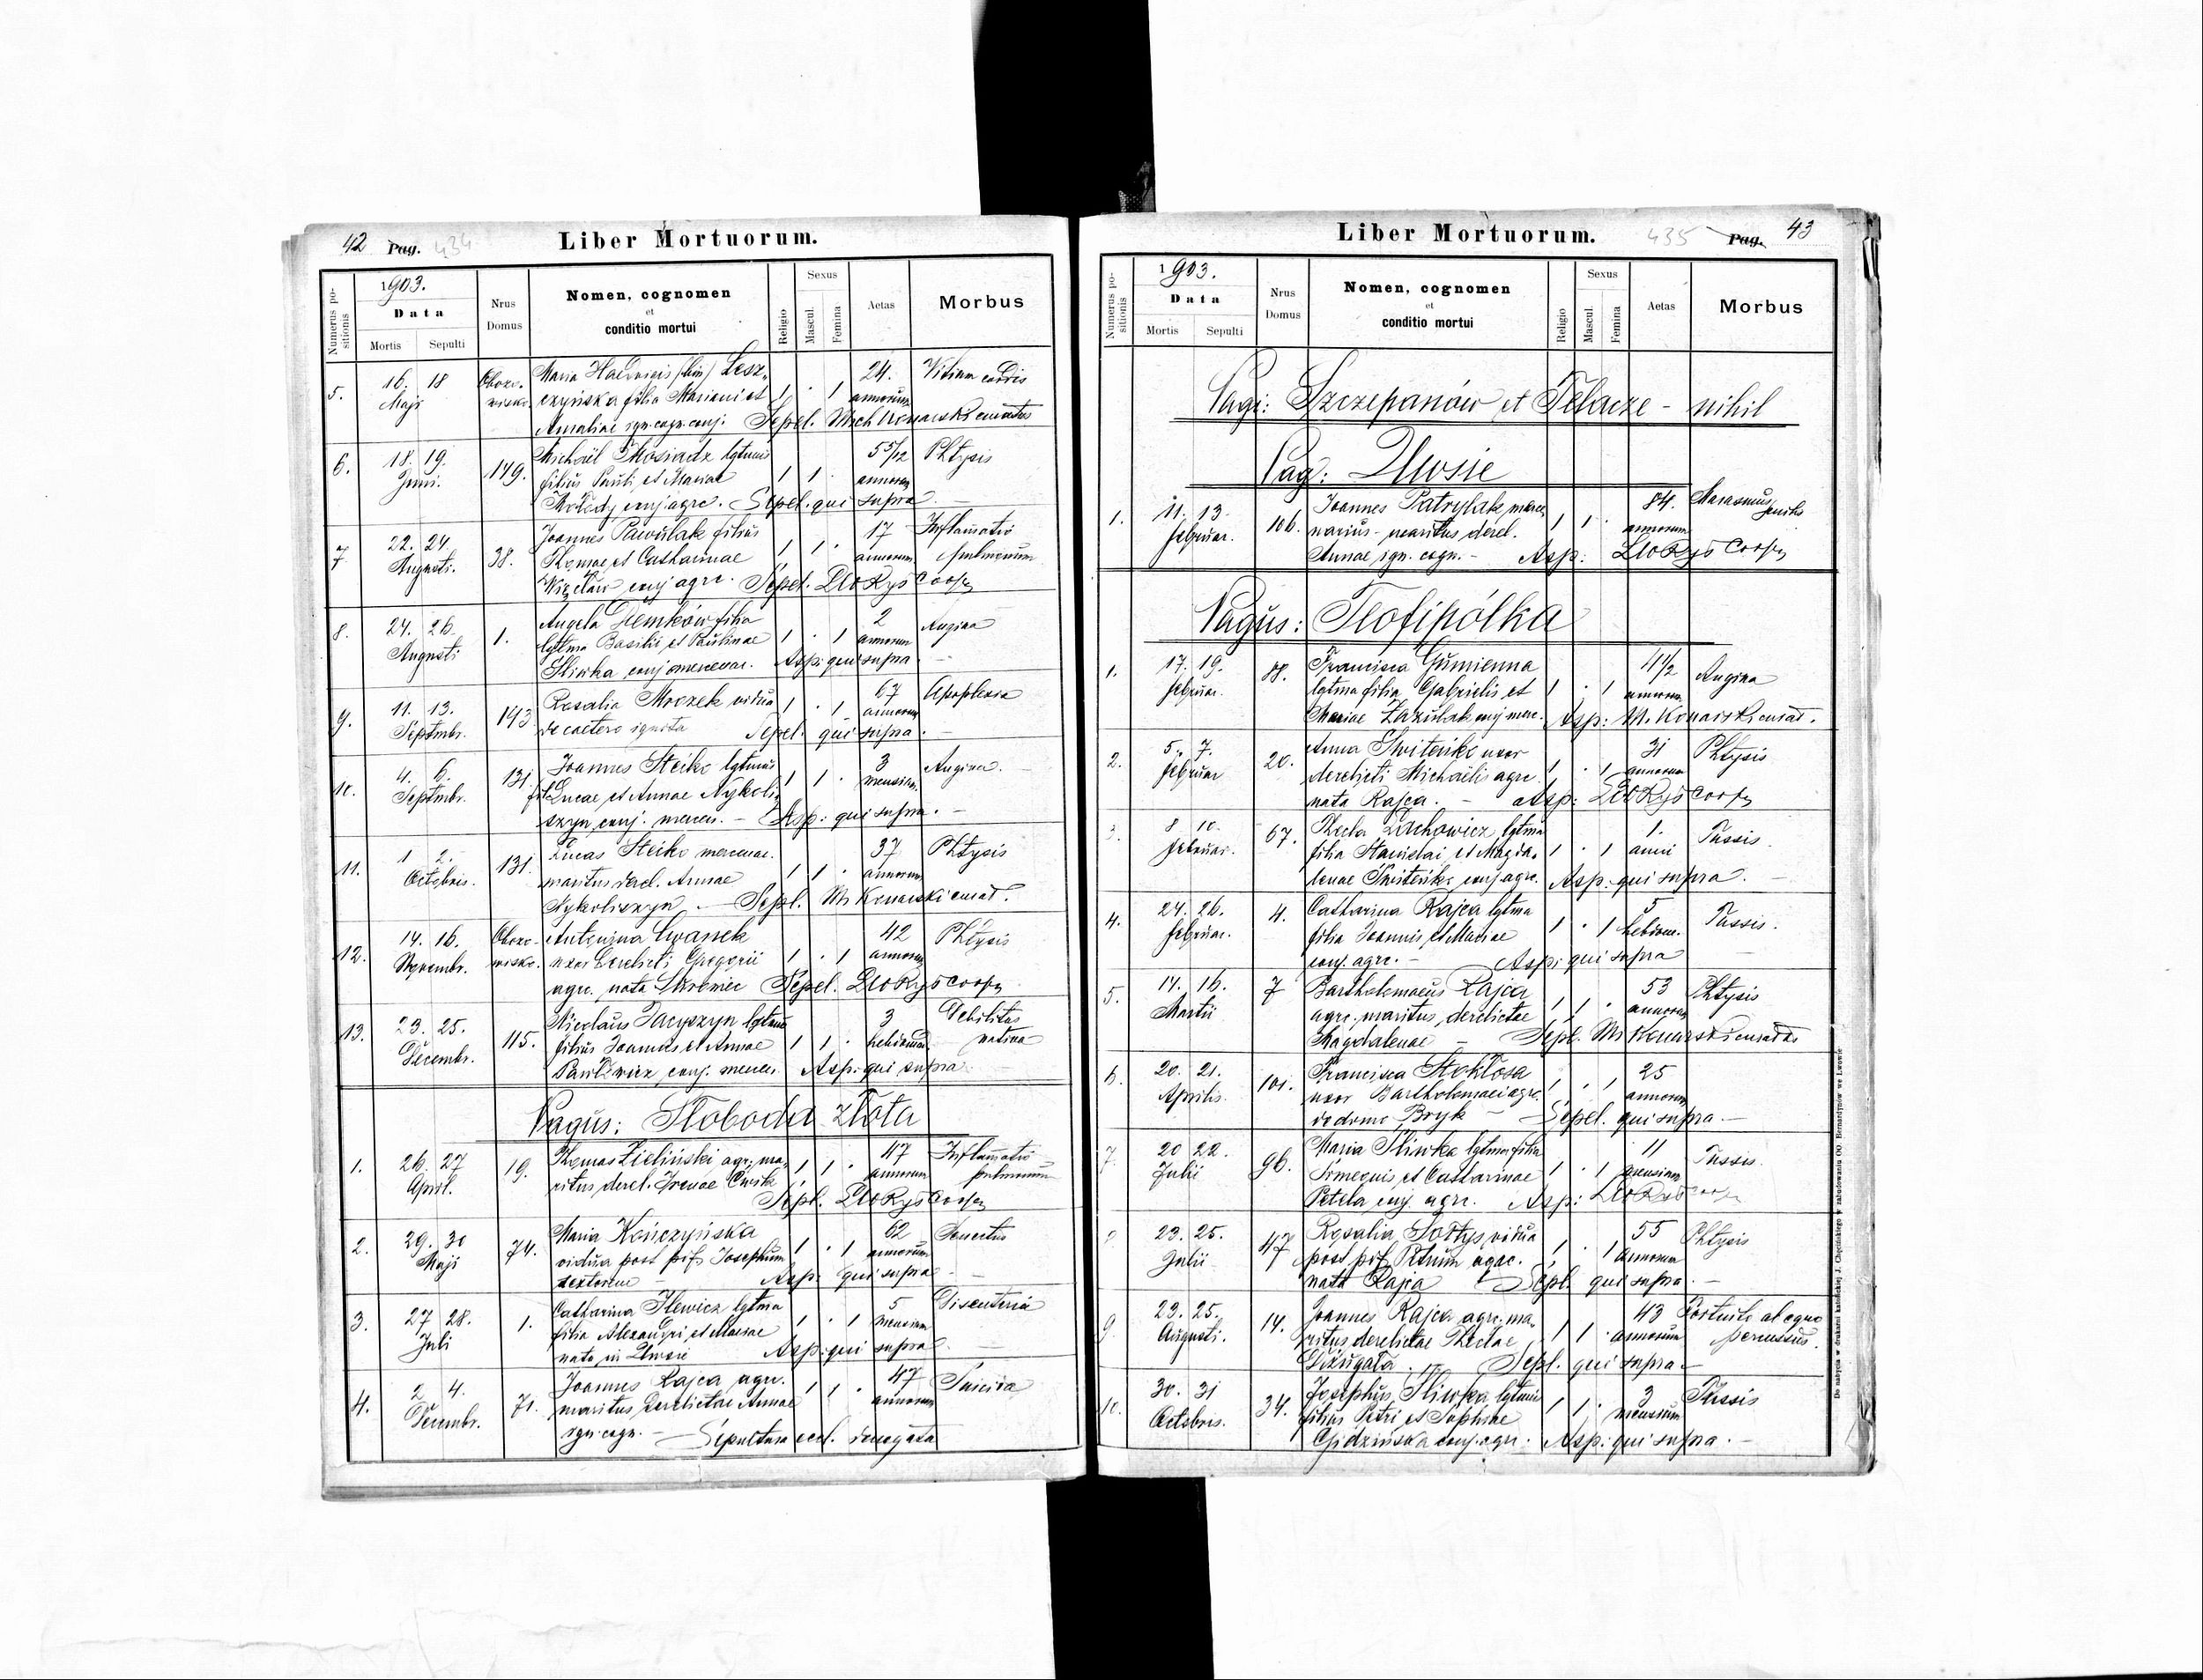 42 Pag. 434
Liber Mortuorum.
Numerus positionis
1903.
Data
Mortis Sepulti
Nrus Domus
Nomen, cognomen
et
conditio mortui
Religio
Sexus
Mascul. Femina
Aetas
Morbus
5. 16. 18 Maria Lesz- 24. Vitium cordis
Maji czyńska filia Mariani et 1 . 1 annorum
Amaliae ign. cogn. conj. Sepel. Mich Konarski curatus
6. 18. 19. 149. Michaël Mosiadz lgtmus 5 5/12 Phtysis
Junii. filius Pauli et Mariae 1 1 annorum
conj. agrc. Sepel. qui supra. —
7. 22. 24. 38. Joannes Pawulak filius 17 Inflamatio
Augusti. Thomae et Catharinae 1 1 . annorum pulmonum
conj agrc. Sepel. Leo Ryś Cooper
8. 24. 26. 1. Angela Demków filia 2 Angina
Augusti lgtma Basilii et Paulinae 1 . 1 annorum
Śliwka conj. mercenar. Asp: qui supra. —
9. 11. 13. 143. Rosalia Mrozek vidua 1 . 1 67 Apoplexia
Septembr. de caetero ignota annorum
Sepel. qui supra. —
10. 4. 6. 131. Joannes Steiko lgtmus 1 1 . 3 Angina. —
Septembr. fil. Lucae et Annae Nykoli- mensium
szyn conj. mercen. — Asp: qui supra. —
11. 1 2. 131. Lucas Steiko mercenar. 37 Phtysis
Octobris. maritus derel. Annae 1 1 . annorum
Nykoliszyn — Sepl. M. Konarski curat.
12. 14. 16. Antonina Cwanek 42 Phtysis
Novembr. uxor derelicti Gregorii 1 . 1 annorum
agrc. nata Skremiec Sepel. Leo Ryś Cooper
13. 23. 25. 115. Nicolaus Jacyszyn lgtmus 3 Debilitas
Decembr. filius Joannis et Annae 1 1 . hebdomad. nativa
conj. mercen. Asp: qui supra
Pagus: Słoboda złota
1. 26. 27 19. Thomas Zieliński agr: ma- 1 1 . 47 Inflamatio
April. ritus derel. Irenae Cwik annorum pulmonum
Sepl. Leo Ryś Cooper
2. 29. 30 74. Maria Kończyńska 62 Senectus
Maji vidua post pif Josephum 1 . 1 annorum
textorem — Asp: qui supra —
3. 27 28. 1. Catharina Ilewicz lgtma 5 Disenteria
Juli filia Alexandri et Mariae 1 . 1 mensium
nata in Uwsie Asp: qui supra —
4. 2 4. 71. Joannes Rajca agrc. 47 Suicida
Decembr. maritus derelictae Annae 1 1 . annorum
ign. cogn. — Sepultura eccl. denegata
Liber Mortuorum. 435 Pag. 43
Numerus positionis
1903.
Data
Mortis Sepulti
Nrus Domus
Nomen, cognomen
et
conditio mortui
Religio
Sexus
Mascul. Femina
Aetas
Morbus
Pagi: Szczepanów et Telacze — nihil
Pag: Uwsie
1. 11. 13. 106. Joannes Patrylak merce- 84. Marasmus
Februar. narius — maritus derel. 1 1 . annorum senilis
Annae ign. cogn. — Asp: Leo Ryś Cooper
Pagus: Teofipólka
1. 17. 19. 88. Francisca Gumienna 4 1/2 Angina
Februar. lgtma filia Gabrielis et 1 . 1 annorum
Mariae Zazulak conj merc. Asp: M. Konarski curat.
2. 5. 7. 20. Anna Switeńko uxor 31 Phtysis
Februar derelicti Michaëlis agrc. 1 . 1 annorum
nata Rajca. — Asp: Leo Ryś Cooper
3. 8 10. 67. Thecla Zuchowicz lgtma 1. Tussis.
Februar. filia Stanislai et Magda- 1 . 1 anni
lenae Switeńko conj agrc. Asp: qui supra. —
4. 24. 26. 4. Catharina Rajca lgtma 5 Tussis.
Februar. filia Joannis et Mariae 1 . 1 hebdom.
conj. agrc. — Asp: qui supra —
5. 14. 16. 7 Bartholomaeus Rajca 53 Phtysis
Martii agrc. maritus derelictae 1 1 . annorum
Magdalenae — Sepl. M. Konarski curatus
6. 20. 21. 101. Francisca Stokłosa 25
Aprilis uxor Bartholomaei agrc. 1 . 1 annorum
de domo Bryk — Sepel. qui supra. —
7. 20 22. 96. Maria Śliwka lgtma filia 11 Tussis.
Julii Simeonis et Catharinae 1 . 1 mensium
Petela conj. agrc. Asp: Leo Ryś Cooper
8 23. 25. 47 Rosalia Sołtys vidua 55 Phtysis
Julii post pif. Petrum agrc. 1 . 1 annorum
nata Rajca Sepl. qui supra. —
9 23. 25. 14. Joannes Rajca agrc. ma- 43 Fortuito ab equo
Augusti. ritus derelictae Theclae 1 1 . annorum percussus.
Sepl. qui supra. —
10. 30. 31 34. Josephus Śliwka lgtmus 3 Tussis
Octobris. filius Petri et Sophiae 1 1 . mensium
conj. agrc. Asp: qui supra. —
Do nabycia w drukarni katolickiej J. Chęcińskiego w zabudowaniu OO. Bernardynów we Lwowie